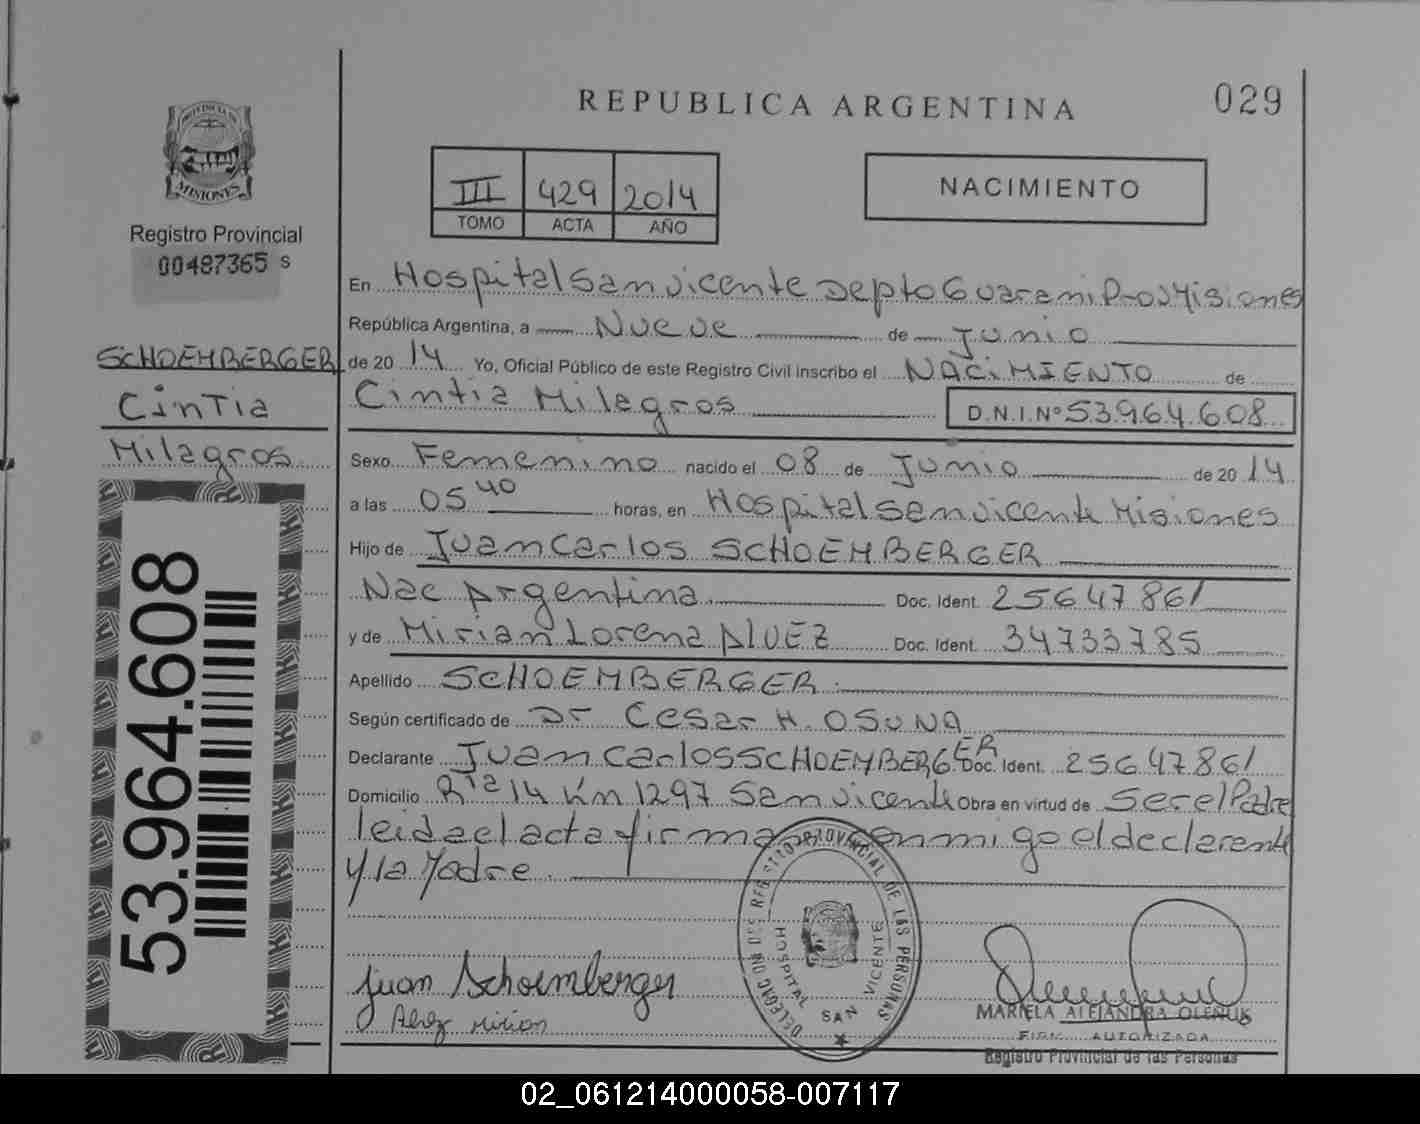 REPUBLICA ARGENTINA
029
PROVINCIA DE
MISIONES
Registro Provincial
00487365 S
III 429 2014
TOMO ACTA AÑO
NACIMIENTO
SCHOEMBERGER
Cintia
Milagros
53.964.608
En Hospital San vicente Depto Guarani Prov Misiones
República Argentina, a Nueve de Junio
de 2014 Yo, Oficial Público de este Registro Civil inscribo el NACIMIENTO de
Cintia Milagros D.N.I.Nº 53.964.608
Sexo Femenino nacido el 08 de Junio de 2014
a las 05 40 horas, en Hospital San vicente Misiones
Hijo de Juan Carlos SCHOEMBERGER
Nac Argentina Doc. Ident. 25647861
y de Mirian Lorena ALVEZ Doc. Ident. 34733785
Apellido SCHOEMBERGER
Según certificado de Dr Cesar H. OSUNA
Declarante Juan Carlos SCHOEMBERGER Doc. Ident. 25647861
Domicilio Rta 14 Km 1297 San vicente Obra en virtud de Ser el Padre
leida el acta firma conmigo el declarante
y la Madre.
Juan Schoemberger
Alvez Mirian
DELEGACION DEL REGISTRO PROVINCIAL DE LAS PERSONAS
HOSPITAL SAN VICENTE
MARIELA ALEJANDRA OLENUK
FIRMA AUTORIZADA
Registro Provincial de las Personas
02_061214000058-007117